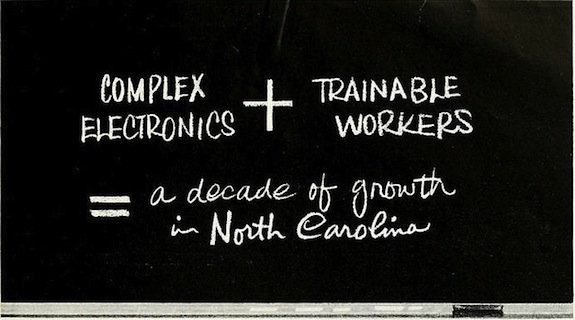 COMPLEX
ELECTRONICS
+
TRAINABLE
WORKERS
= a decade of growth
in North Carolina